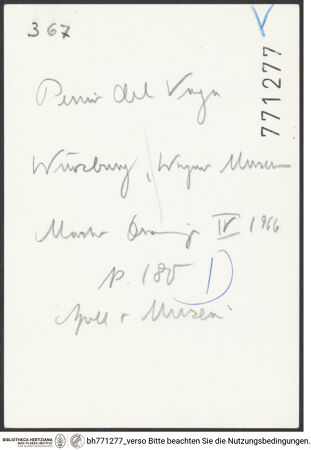 367
771277
Perin del Vaga
Würzburg, Wagner Museum
Master Drawings IV 1966
p. 185 D
Apoll + Musen
BIBLIOTHECA HERTZIANA
MAX-PLANCK-INSTITUT
bh771277_verso Bitte beachten Sie die Nutzungsbedingungen.